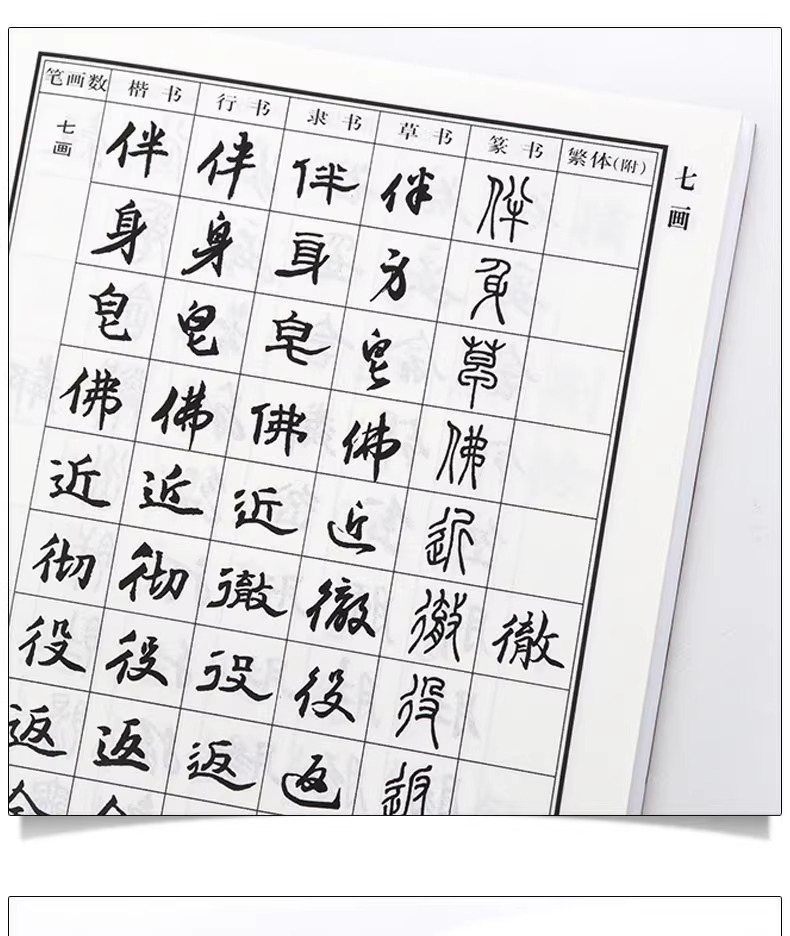 笔画数 楷书 行书 隶书 草书 篆书 繁体(附)
七画
七画 伴 伴 伴 伴 伴
身 身 身 身 身
皂 皂 皂 皂 皂
佛 佛 佛 佛 佛
近 近 近 近 近
彻 彻 徹 徹 徹 徹
役 役 役 役 役
返 返 返 返 返